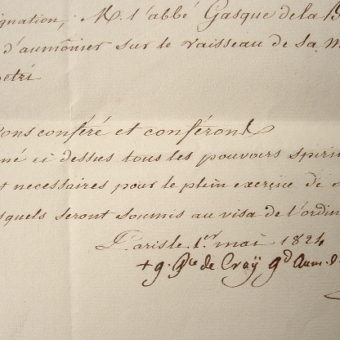 ignation, M. l'abbé Gasque de la
d'aumônier sur le vaisseau de sa m
ons conféré et conférons
né ci dessus tous les pouvoirs spiri
t nécessaires pour le plein exercice de
squels seront soumis au visa de l'ordin
Paris le 1.er mai 1824
+ g. de Croÿ gd aum. d